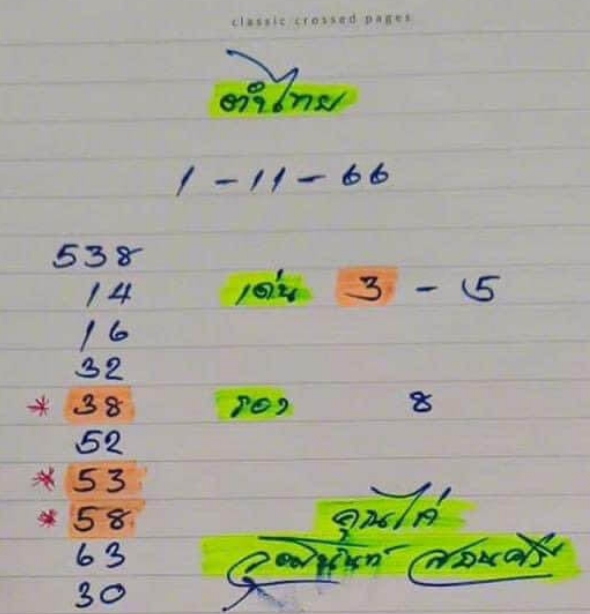 classic crossed pages
ตำไทย
1 - 11 - 66
538
14 เด่น 3 - 5
16
32
* 38 รอง 8
52
* 53
* 58 คุณไก่
63
30